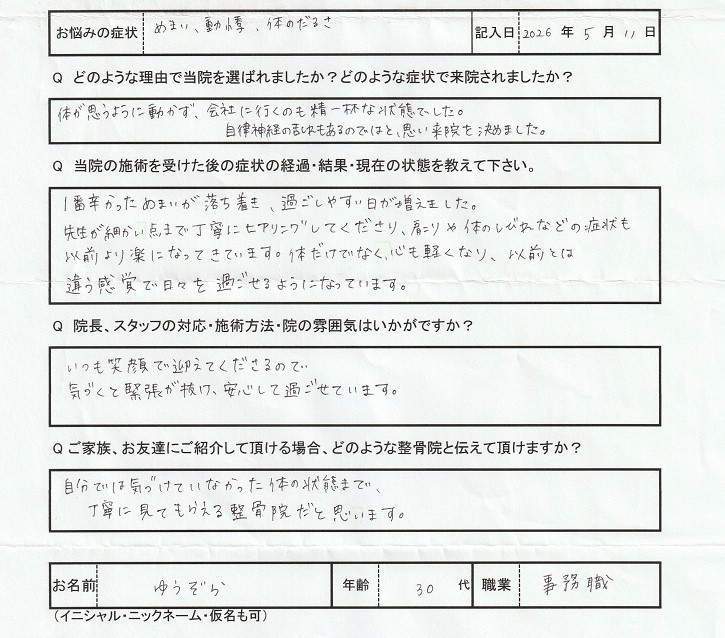 お悩みの症状 めまい、動悸、体のだるさ 記入日 2026 年 5 月 11 日
Q どのような理由で当院を選ばれましたか？どのような症状で来院されましたか？
体が思うように動かず、会社に行くのも精一杯な状態でした。
自律神経の乱れもあるのではと、思い来院を決めました。
Q 当院の施術を受けた後の症状の経過・結果・現在の状態を教えて下さい。
1番辛かっためまいが落ち着き、過ごしやすい日が増えました。
先生が細かい点まで丁寧にヒアリングしてくださり、肩こりや体のしびれなどの症状も
以前より楽になってきています。体だけでなく、心も軽くなり、以前とは
違う感覚で日々を過ごせるようになっています。
Q 院長、スタッフの対応・施術方法・院の雰囲気はいかがですか？
いつも笑顔で迎えてくださるので
気づくと緊張が抜け、安心して過ごせています。
Q ご家族、お友達にご紹介して頂ける場合、どのような整骨院と伝えて頂けますか？
自分では気づけていなかった体の状態まで、
丁寧に見てもらえる整骨院だと思います。
お名前 ゆうぞら 年齢 30 代 職業 事務職
（イニシャル・ニックネーム・仮名も可）